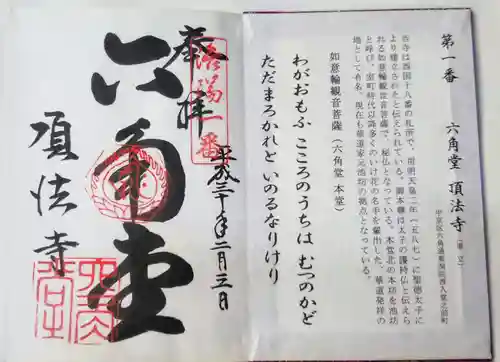 第一番　六角堂　頂法寺（単立）
中京区六角通東洞院西入堂之前町
当寺は西国十八番の札所で、用明天皇二年（五八七）に聖徳太子に
より建立されたと伝えられている。御本尊は太子の護持仏と伝えら
れる如意輪観世音菩薩で、秘仏となっている。本堂北の本坊を池坊
と呼び、室町時代以降多くのいけ花の名手を輩出した。華道発祥の
地として有名。現在も華道家元池坊の拠点となっている。
如意輪観音菩薩（六角堂 本堂）
わがおもふ こころのうちは むつのかど
ただまろかれと いのるなりけり
平成三十年二月三日
洛陽一番
奉拝
六角堂
頂法寺